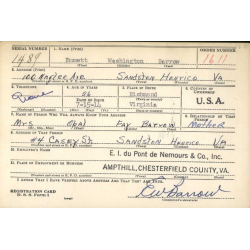 SERIAL NUMBER 1. NAME (Print) ORDER NUMBER
1489 Emmett Washington Barrow 1611
2. ADDRESS (Print)
100 Ave SANDSTON HENRICO VA
3. TELEPHONE 4. AGE IN YEARS 5. PLACE OF BIRTH 6. COUNTRY OF CITIZENSHIP
26 Richmond
DATE OF BIRTH U.S.A.
7-15-14 Virginia
7. NAME OF PERSON WHO WILL ALWAYS KNOW YOUR ADDRESS 8. RELATIONSHIP OF THAT PERSON
Mrs Fay Barrow Mother
9. ADDRESS OF THAT PERSON
44 Casey St. Sandston Henrico VA
10. EMPLOYER'S NAME
E. I. du Pont de Nemours & Co., Inc.
11. PLACE OF EMPLOYMENT OR BUSINESS
AMPTHILL, CHESTERFIELD COUNTY, VA.
I AFFIRM THAT I HAVE VERIFIED ABOVE ANSWERS AND THAT THEY ARE TRUE.
REGISTRATION CARD
D. S. S. Form 1
E W Barrow